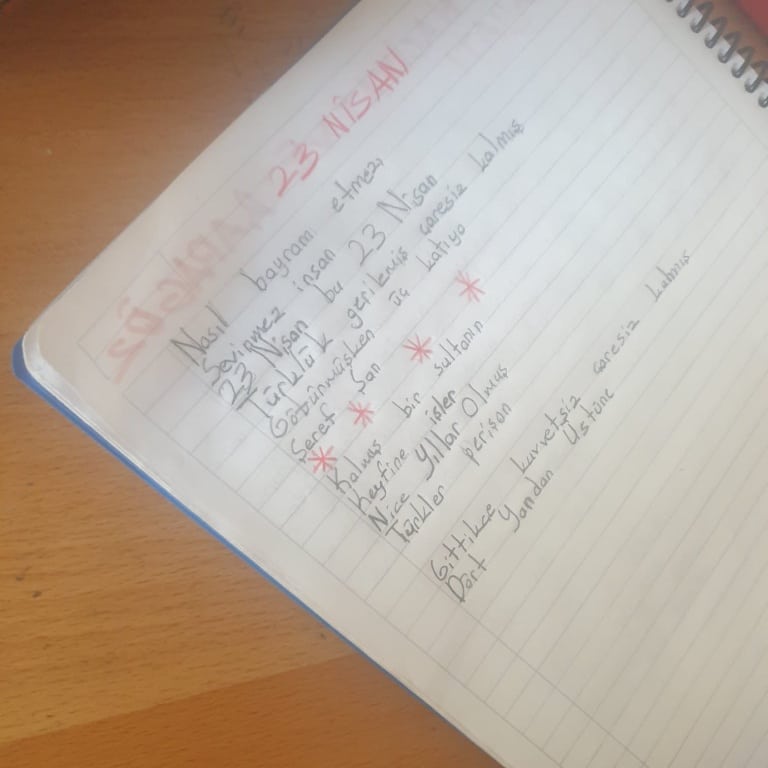 23 NİSAN
Nasıl bayram etmez,
Sevinmez insan
23 Nisan bu 23 Nisan
Türklük gerilemiş çaresiz kalmış
üç
Şeref Şan
Kalmış bir sultanın
keyfine işler
Nice Yıllar Olmuş
Türkler perişan
Gittikçe kuvvetsiz çaresiz kalmış
Dört Yandan Üstüne